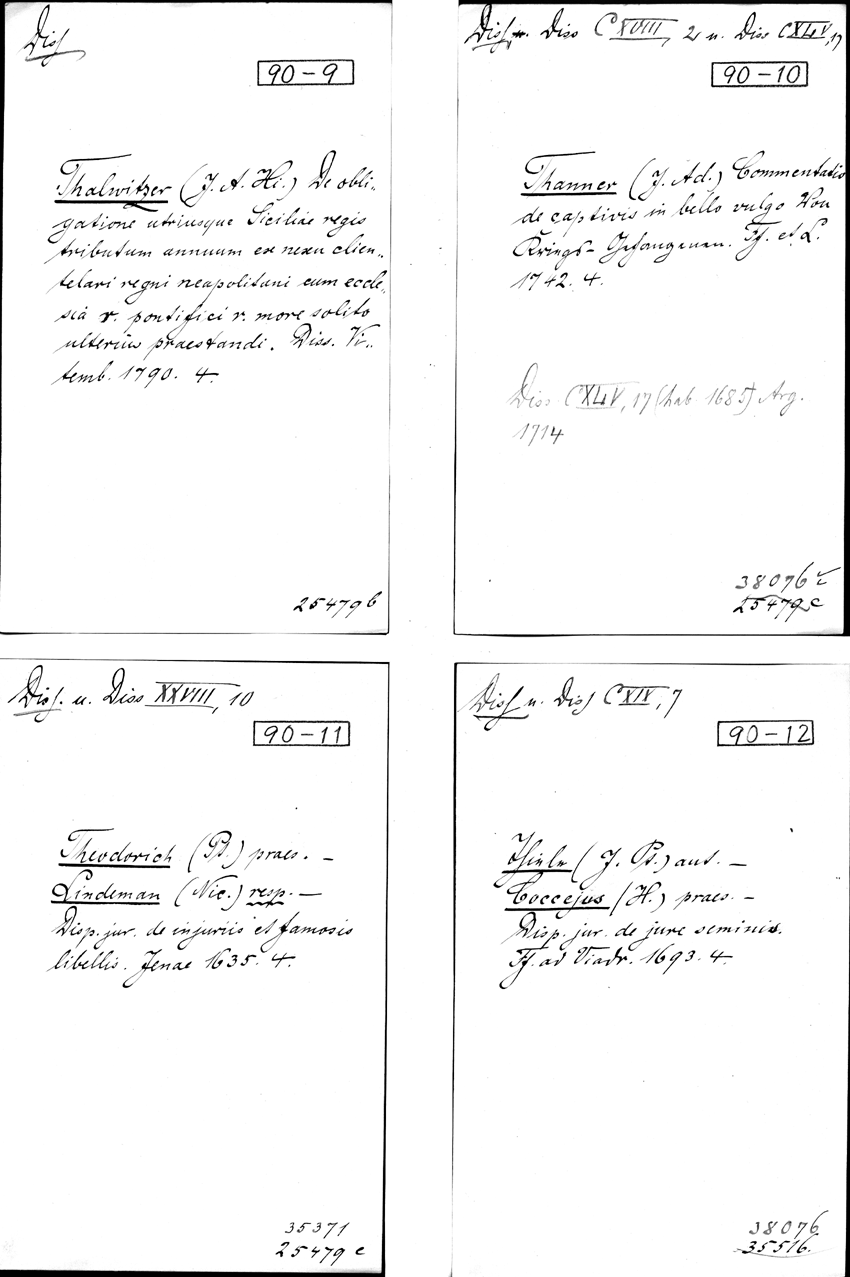 Diss
90-9
Thalwitzer (J. A. Hi.) De obli-
gatione utriusque Siciliae regis
tributum annuum ex nexu clien-
telari regni neapolitani cum eccle-
sia r. pontifici r. more solito
ulterius praestandi. Diss. Vi-
temb. 1790. 4.
25479b
Diss. u. Diss CXVIII, 2 u. Diss CXLV, 17
90-10
Thanner (J. Ad.) Commentatio
de captivis in bello vulgo Von
Kriegs-Gefangenen. Ff. et L.
1742. 4.
Diss CXLV, 17 (hab. 1685) Arg.
1714
38076
25479c
Diss. u. Diss XXVIII, 10
90-11
Theodorich (Pt.) praes. —
Lindeman (Nic.) resp. —
Disp. jur. de injuriis et famosis
libellis. Jenae 1635. 4.
35371
25479c
Diss u. Diss CXIX, 7
90-12
Thiele (J. Pt.) aut. —
Coccejus (H.) praes. —
Disp. jur. de jure seminis.
Ff. ad Viadr. 1693. 4.
38076
35516.